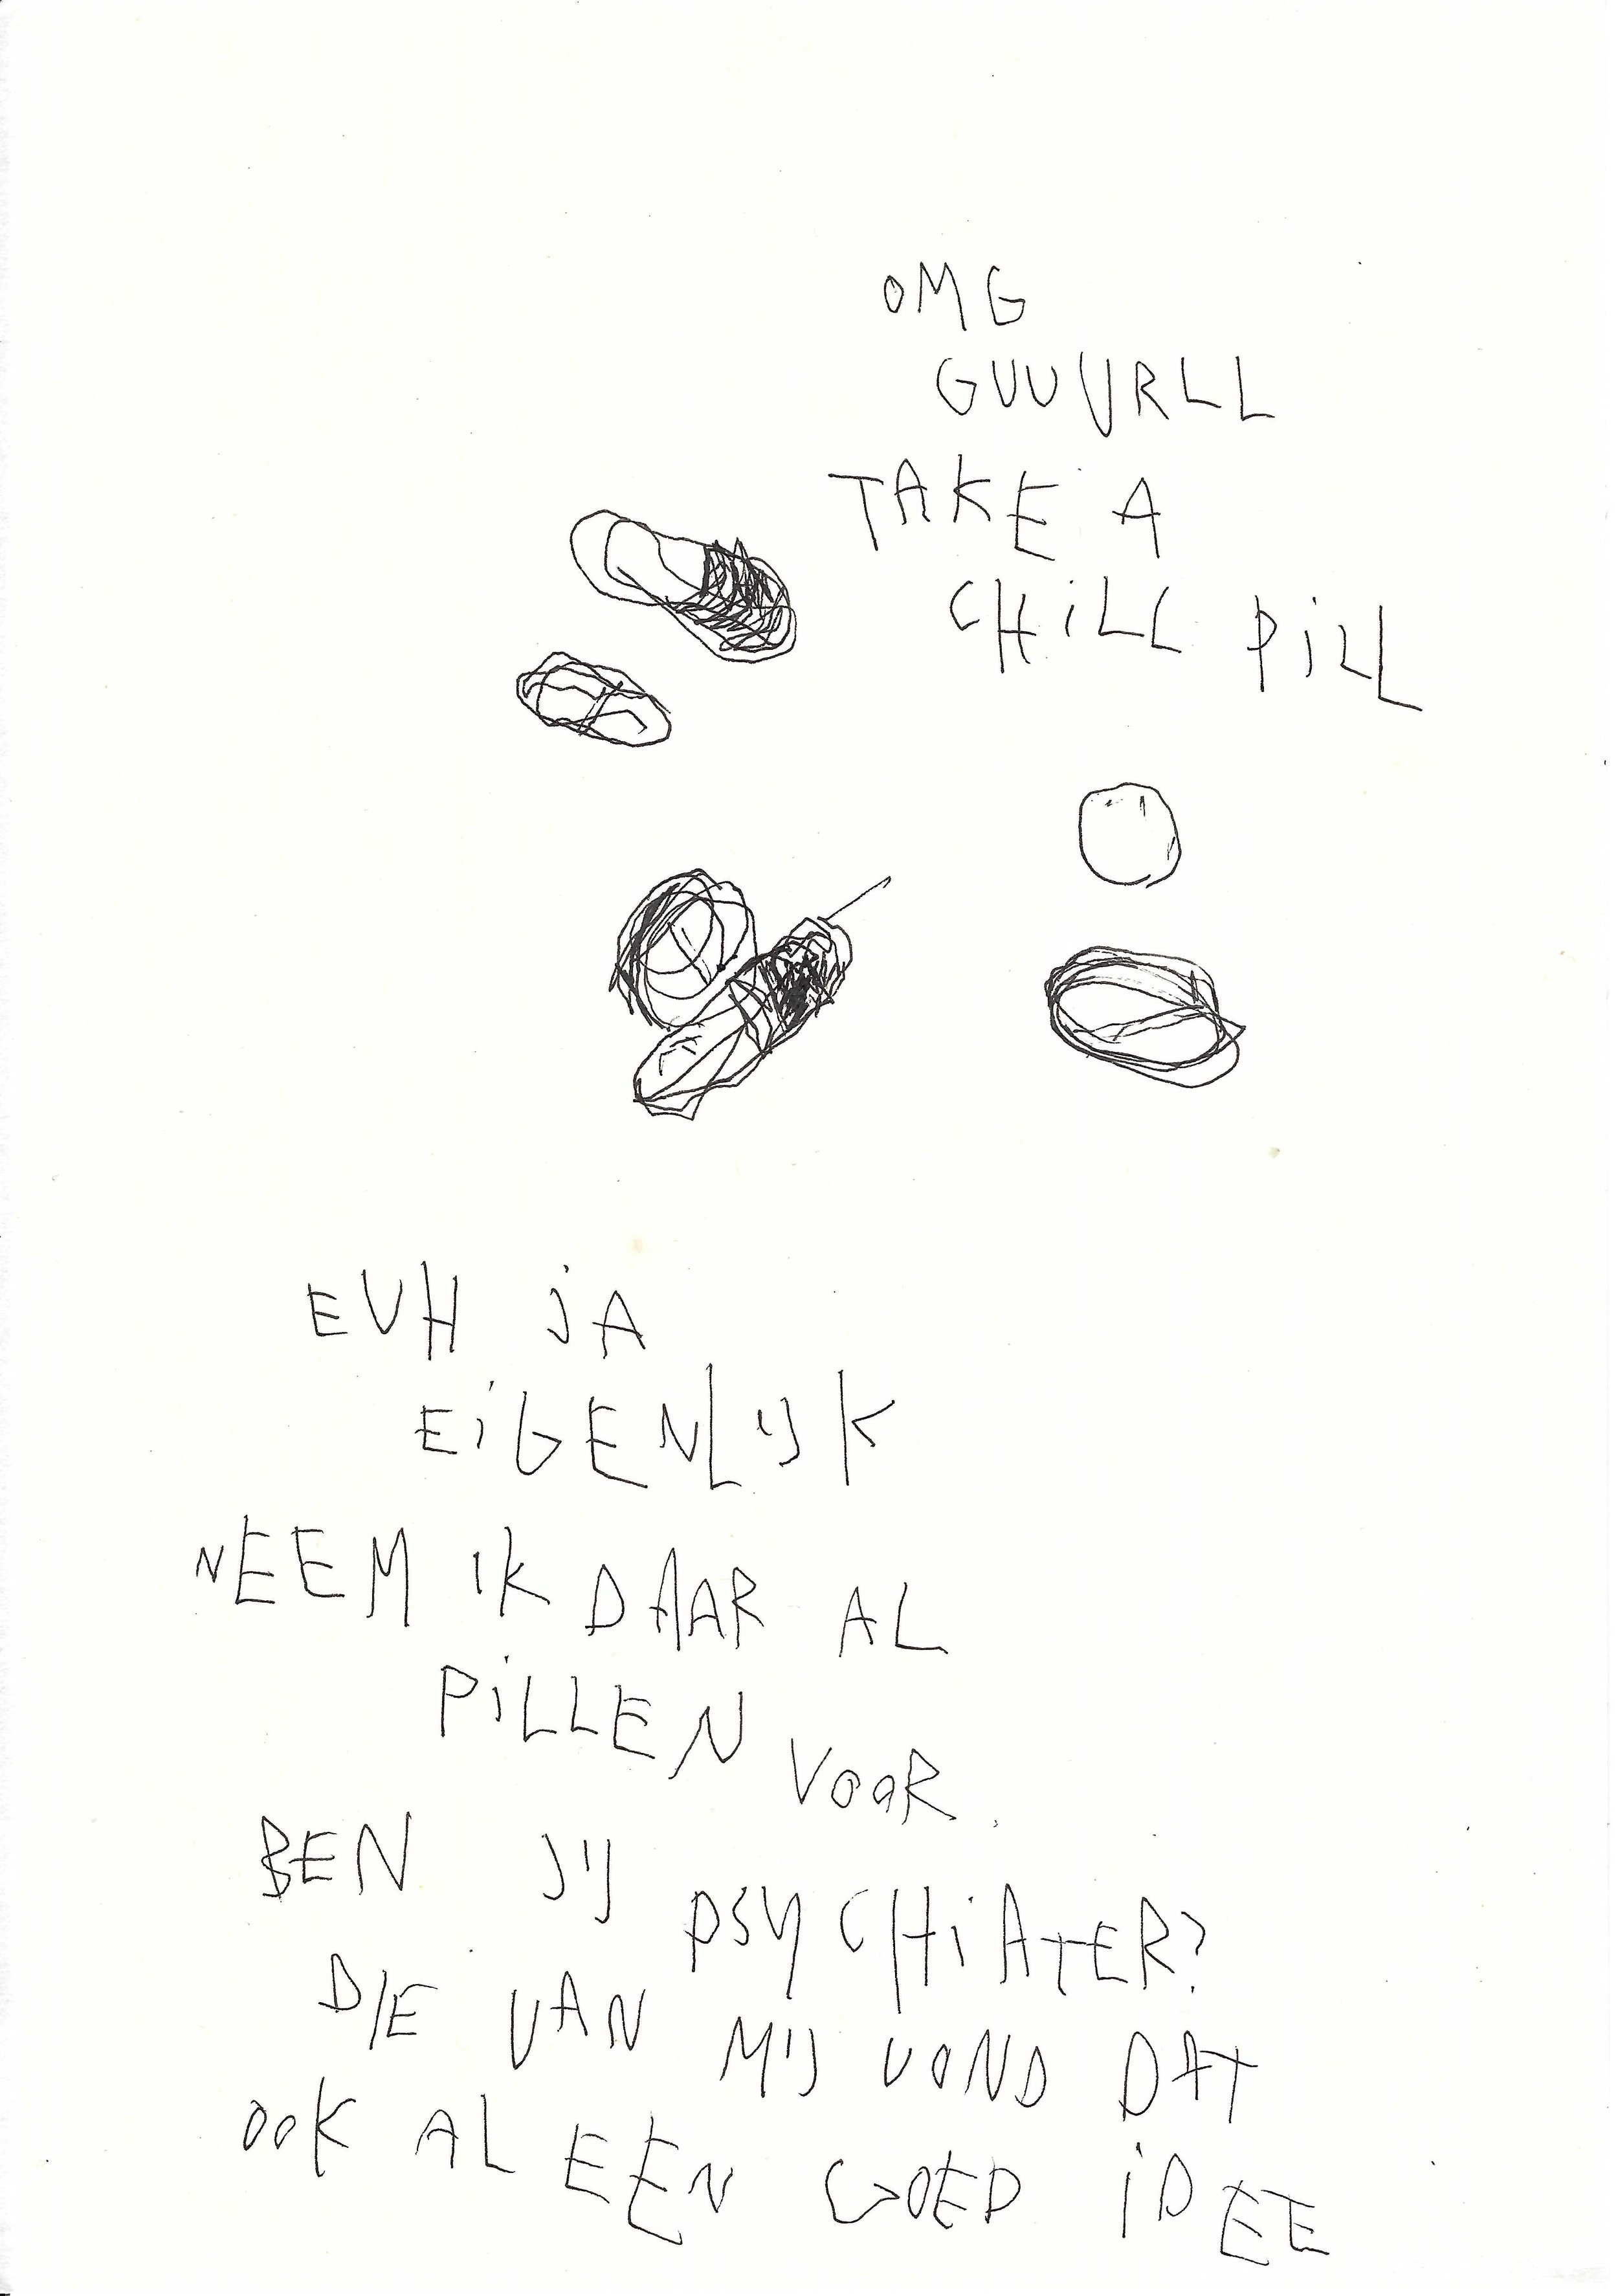 OMG
GUUURLL
TAKE A
CHiLL PiLL
EUH jA
EiGENLIJK
NEEM IK DAAR AL
PiLLEN VOOR.
BEN JIJ PSYCHiATER?
DIE VAN MIJ VOND DAT
OOK AL EEN GOED iDEE